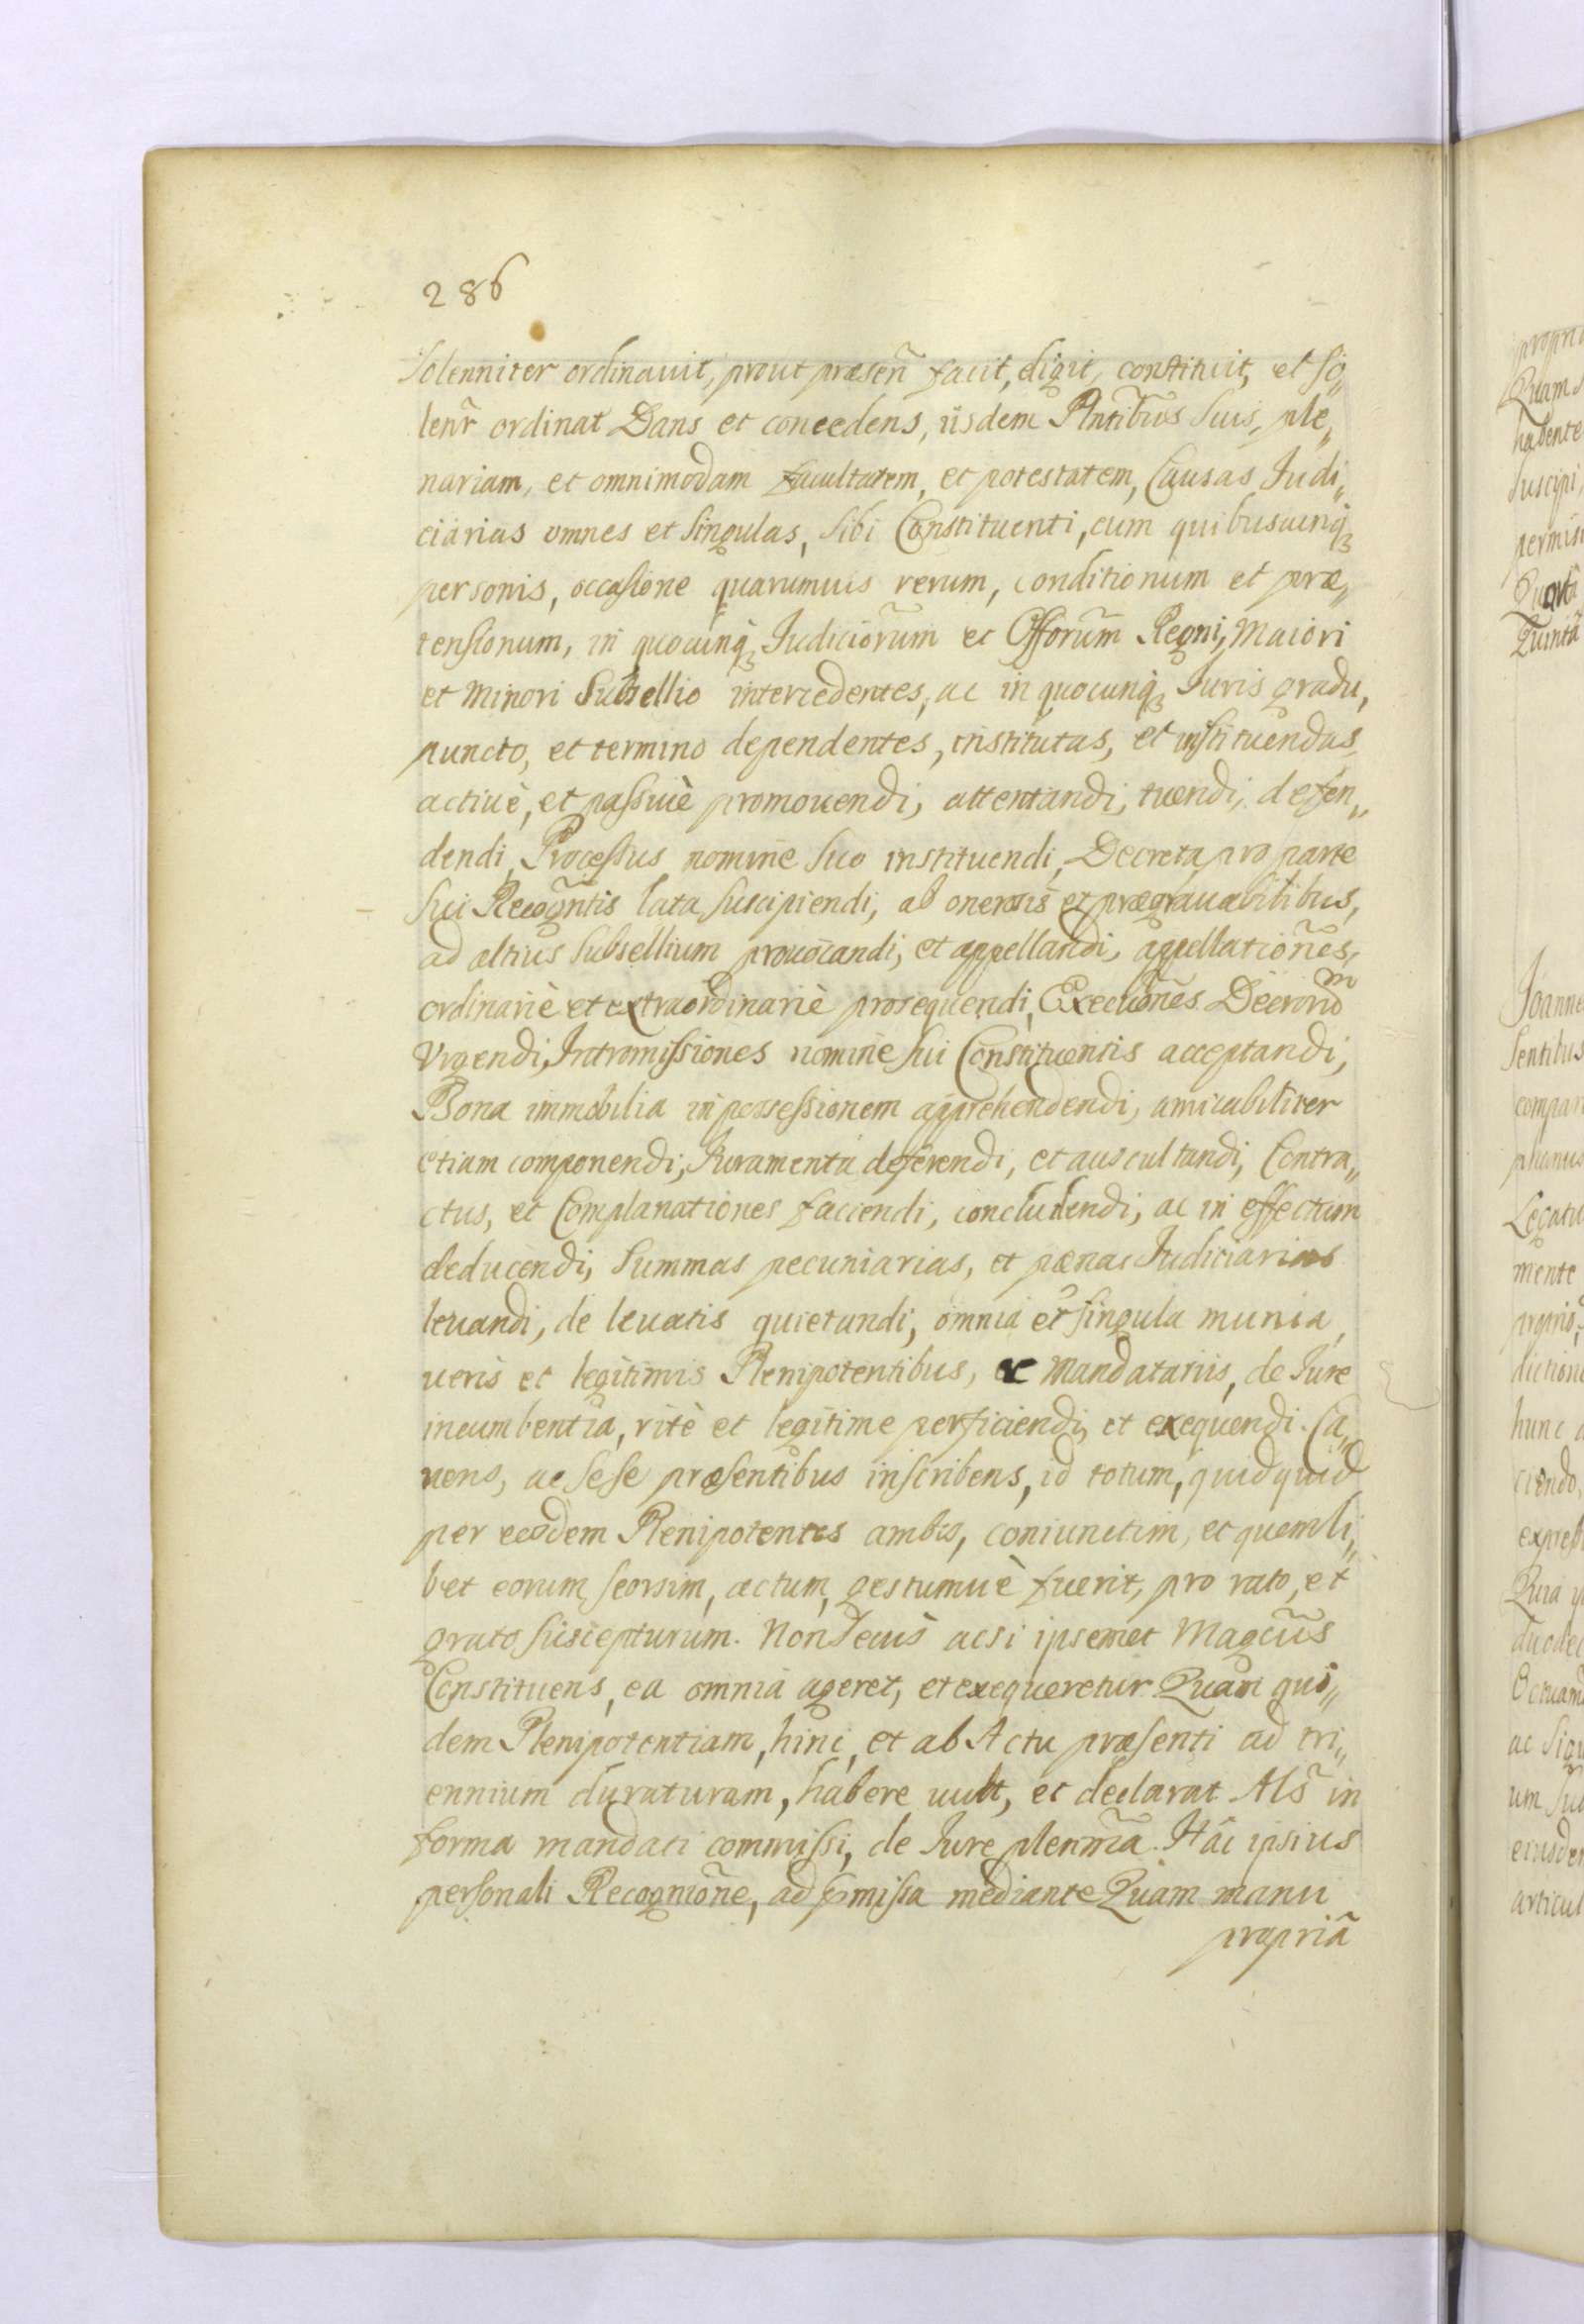 286
Solenniter ordinavit, prout præseñ facit, eligit, constituit, et so„
lenr̃ ordinat Dans et concedens, iisdem Plntĩbus suis, ple„
nariam, et omnimodam facultatem, et potestatem, Causas Judi„
ciarias omnes et singulas, sibi Constituenti, cum quibusuinq3
personis, occasione quarumuis rerum, conditionum et præ„
tensionum, in quocunq3 Judiciorũm et Offorũm Regni, Maiori
et Minori Subsellio intercedentes, ac in quocunq3 Juris gradu,
puncto, et termino dependentes, institutas, et instituendas
activè, et passiuè promouendi, attentandi, tuendi, defen„
dendi, Processus nomine suo instituendi, Decreta pro parte
sui Recogñtis lata suscipiendi, ab onerosis et prægrauabilibus,
ad altius subsellium prouocandi, et appellandi, appellationẽs,
ordinariè et extraordinariè prosequendi, Execuõnes Decretorum
Urgendi, Intromissiones nomine sui Constituentis acceptandi,
Bona immobilia in possessionem apprehendendi, amicabiliter
etiam componendi, Juramenta deferendi, et auscultandi, Contra„
ctus, et Complanationes faciendi, concludendi, ac in effectum
deducendi, Summas pecuniarias, et pænas Judiciarias
leuandi, de leuatis quietandi, omnia et singula munia,
ueris et legitimis Plenipotentibus, et Mandatariis, de Jure
incumbentia, ritè et legitime perficiendi, et exequendi. Ca„
uens, ac sese præsentibus inscribens, id totum, quidquid
per eosdem Plenipotentes ambos, coniunctim, et quemli„
bet eorum seorsim, actum, gestumuè fuerit, pro rato, et
grato suscepturum. Non secus acsi ipsemet Magcũs
Constituens, ea omnia ageret, et exequeretur Quam qui„
dem Plenipotentiam, hinc, et ab Actu præsenti ad tri„
ennium duraturam, habere uult, et declarat Als̃ in
forma mandati commissi, de Jure plenm̃a. Hãc ipsius
personali Recogniõne, ad p̃missa mediante Quam manu
propriã